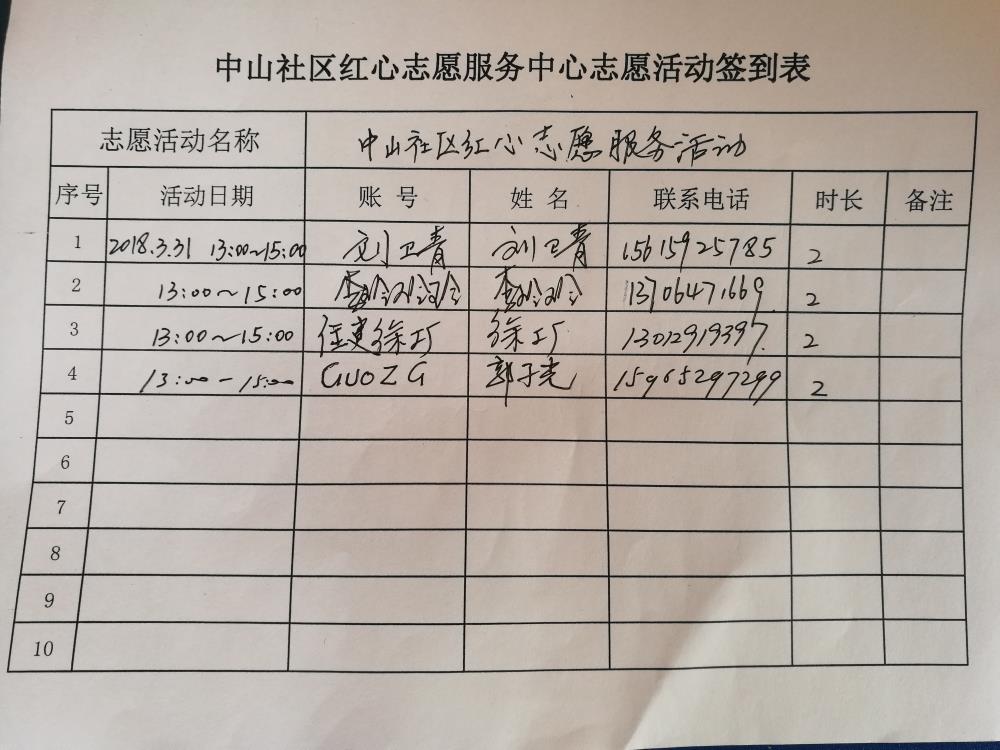 中山社区红心志愿服务中心志愿活动签到表
志愿活动名称 中山社区红心志愿服务活动
序号 活动日期 账号 姓名 联系电话 时长 备注
1 2018.3.31 13:00~15:00 刘卫青 刘卫青 15615925785 2
2 13:00~15:00 13706471669 2
3 13:00~15:00 13012919397 2
4 13:00-15:00 GUOZG 郭子亮 15965297299 2
5
6
7
8
9
10